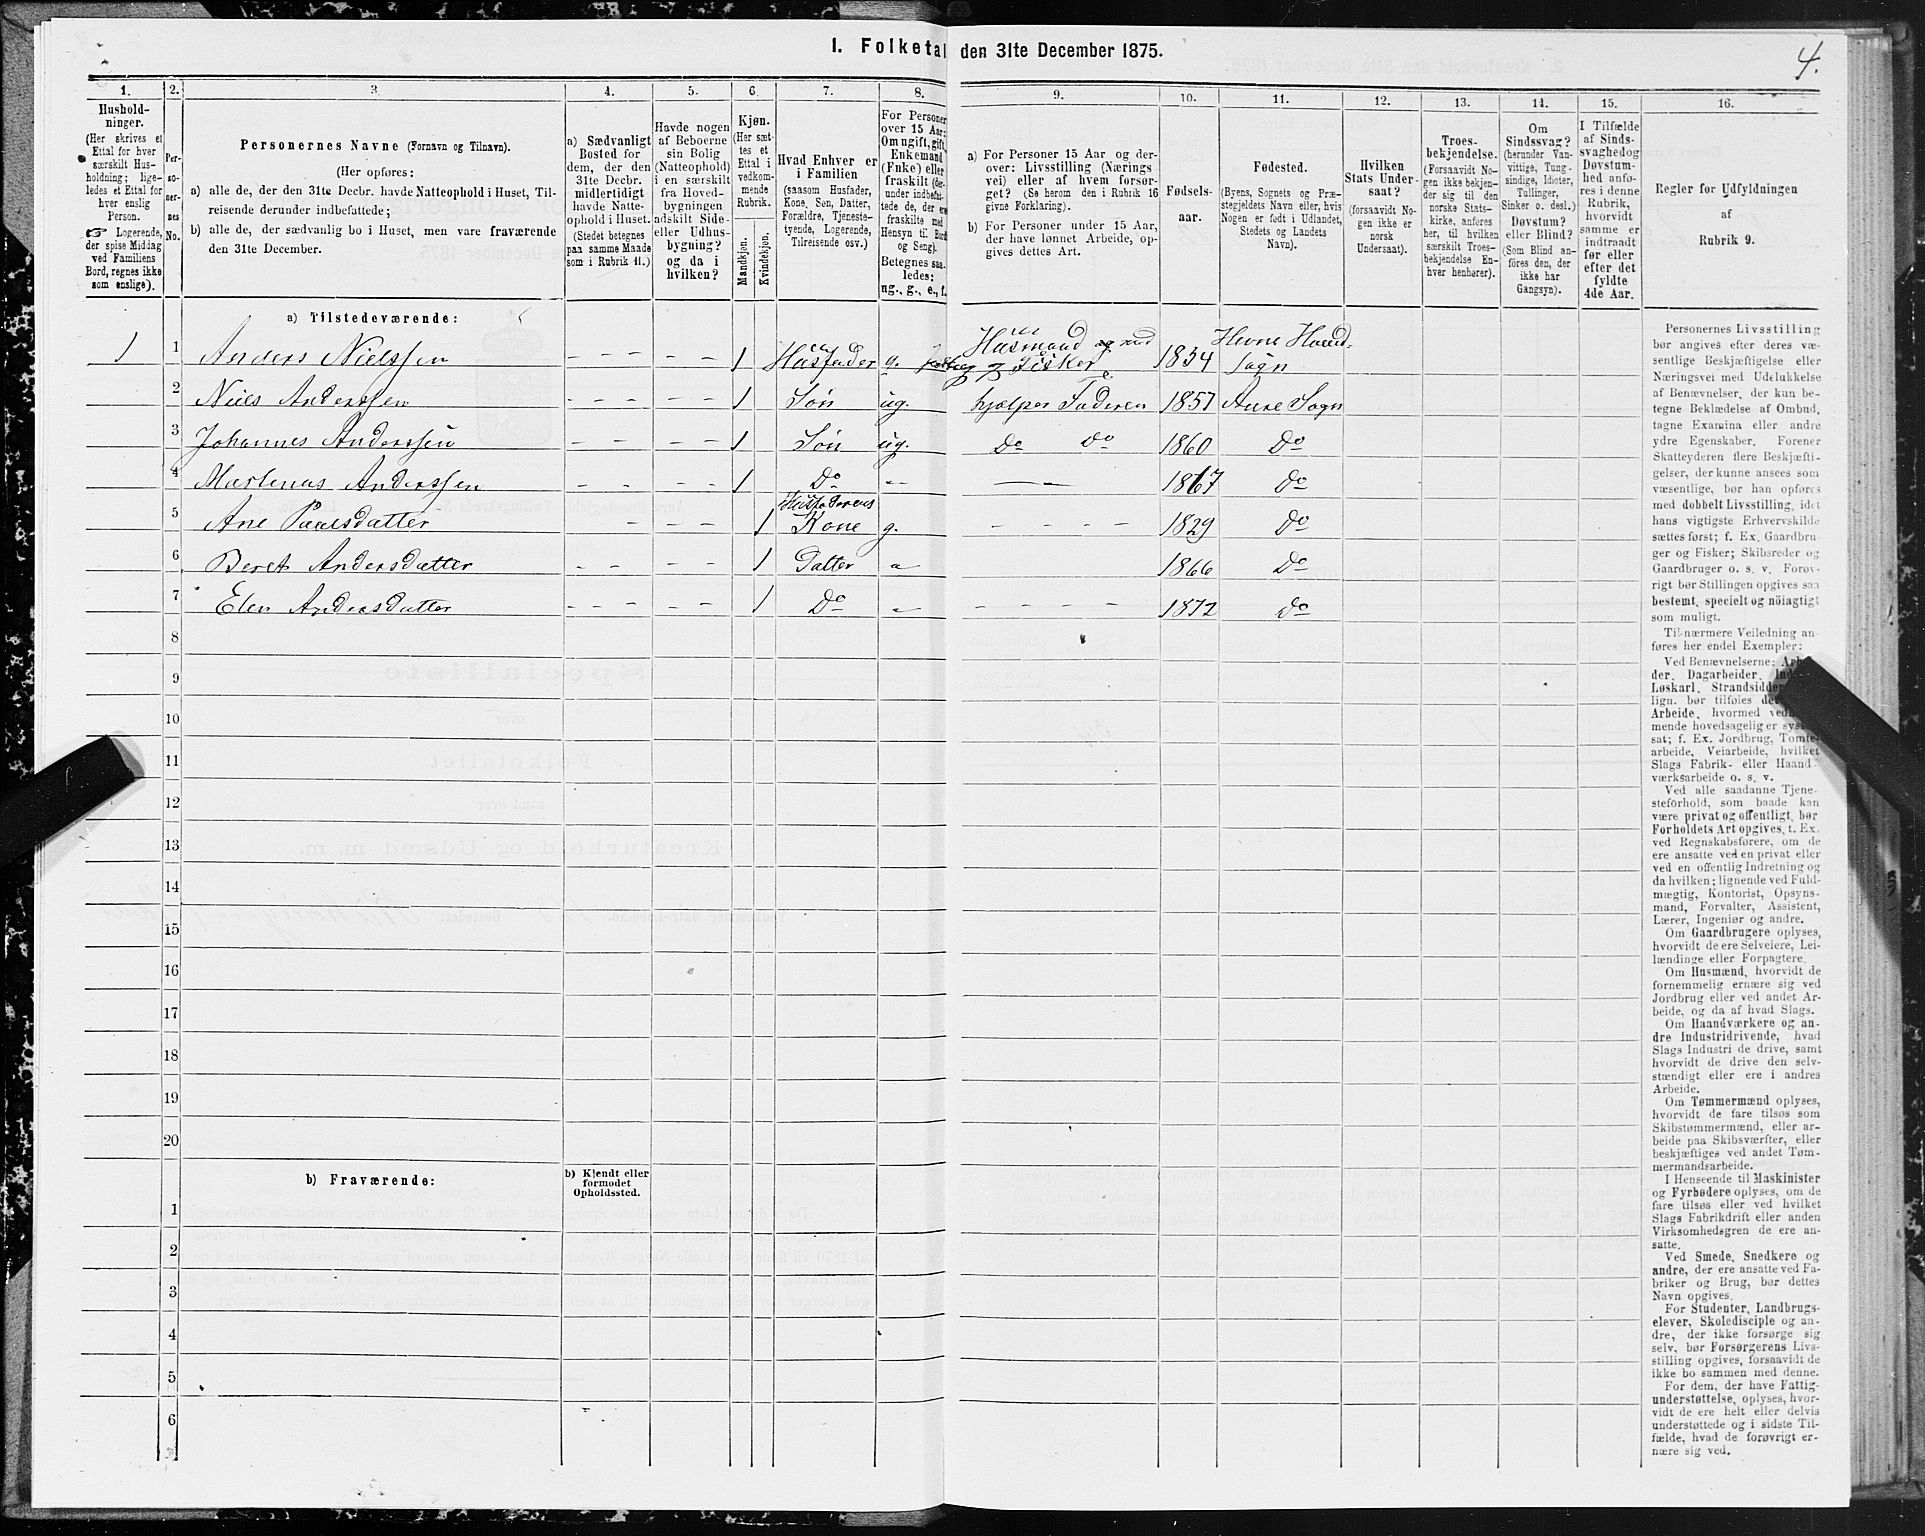 I. Folketal den 31te December 1875.
4.
1.
2.
3.
4.
5.
6.
7.
8.
9.
10.
11.
12.
13.
14.
15.
16.
Hushold-
ninger.
(Her skrives et
Ettal for hver
særskilt Hus-
holdning; lige-
ledes et Ettal for
hver enslig
Person.
Logerende,
der spise Middag
ved Familiens
Bord, regnes ikke
som enslige).
Per-
so-
ner-
nes
No.
Personernes Navne (Fornavn og Tilnavn).
(Her opføres:
a) alle de, der den 31te Decbr. havde Natteophold i Huset, Til-
reisende derunder indbefattede;
b) alle de, der sædvanlig bo i Huset, men vare fraværende
den 31te December.
a) Sædvanligt
Bosted for
dem, der den
31te Decbr.
midlertidigt
havde Natte-
ophold i Huset.
(Stedet betegnes
paa samme Maade
som i Rubrik 11.)
Havde nogen
af Beboerne
sin Bolig
(Natteophold)
i en særskilt
fra Hoved-
bygningen
adskilt Side-
eller Udhus-
bygning?
og da i
hvilken?
Kjøn.
(Her sæt-
tes et
Ettal i
vedkom-
mende
Rubrik.
Mandkjøn.
Kvindekjøn.
Hvad Enhver er
i Familien
(saasom Husfader,
Kone, Søn, Datter,
Forældre, Tjeneste-
tyende, Logerende,
Tilreisende osv.)
For Personer
over 15 Aar:
Om ugift, gift,
Enkemand
(Enke) eller
fraskilt (der-
under indbefat-
tede de, der ere
fraskilte med
Hensyn til Bord
og Seng).
Betegnes saa-
ledes:
ug., g., e., f.
a) For Personer 15 Aar og der-
over: Livsstilling (Nærings-
vei) eller af hvem forsør-
get? (Se herom den i Rubrik 16
givne Forklaring).
b) For Personer under 15 Aar,
der have lønnet Arbeide, op-
gives dettes Art.
Fødsels-
aar.
Fødested.
(Byens, Sognets og Præ-
stegjeldets Navn eller, hvis
Nogen er født i Udlandet,
Stedets og Landets
Navn).
Hvilken
Stats Under-
saat?
(forsaavidt No-
gen ikke er
norsk
Undersaat).
Troes-
bekjendelse.
(Forsaavidt No-
gen ikke bekjen-
der sig til den
norske Stats-
kirke, anføres
her, til hvilken
særskilt Troes-
bekjendelse En-
hver henhører).
Om
Sindssvag?
(herunder Van-
vittige, Tung-
sindige, Idioter,
Tullinger,
Sinker o. desl.)
Døvstum?
eller Blind?
(Som Blind an-
föres den, der
ikke har
Gangsyn).
I Tilfælde
af Sinds-
svaghed og
Døvstum-
hed anfø-
res i denne
Rubrik,
hvorvidt
samme er
indtraadt
før eller
efter det
fyldte
4de Aar.
Regler for Udfyldningen
af
Rubrik 9.
a) Tilstedeværende:
1 1 Anders Nielssen – – – – – 1 Husfader g. Husmand med og Fisker 1834 Hevne Sogn
2 Niels Anderssen – – – – – 1 Søn ug. hjælper Faderen 1857 Aure Sogn
3 Johannes Anderssen – – – – 1 Søn ug. Do Do 1860 Do
4 Martenus Anderssen – – – – 1 Do „ — 1867 Do
5 Ane Paalsdatter – – – 1 Husfaderens Kone g. – – – – 1829 Do
6 Beret Andersdatter – – – – 1 Datter „ 1866 Do
7 Elen Andersdatter – – – – 1 Do „ – – – – 1872 Do
8
9
10
11
12
13
14
15
16
17
18
19
20
b) Fraværende:
b) Kjendt eller
formodet
Opholdssted.
1
2
3
4
5
6
Personernes Livsstilling
bør angives efter deres væ-
sentlige Beskjæftigelse eller
Næringsvei med Udelukkelse
af Benævnelser, der kun be-
tegne Beklædelse af Ombud,
tagne Examina eller andre
ydre Egenskaber. Forener
Skatteyderen flere Beskjæfti-
gelser, der kunne ansees som
væsentlige, bør han opføres
med dobbelt Livsstilling, idet
hans vigtigste Erhvervskilde
sættes først; f. Ex. Gaardbru-
ger og Fisker; Skibsreder og
Gaardbruger o. s. v. Forøv-
rigt bør Stillingen opgives saa
bestemt, specielt og nöiagtigt
som muligt.
Til nærmere Veiledning an-
føres her endel Exempler:
Ved Benævnelserne: Arbei-
der, Dagarbeider,
Løskarl, Strandsidder
lign. bør tilføies det
Arbeide, hvormed ved-
mende hovedsagelig er syssel-
sat; f. Ex. Jordbrug, Tomte-
arbeide, Veiarbeide, hvilket
Slags Fabrik- eller Haand-
værksarbeide o. s. v.
Ved alle saadanne Tjene-
steforhold, som baade kan
være privat og offentligt, bør
Forholdets Art opgives, t. Ex.
ved Regnskabsførere, om de
ere ansatte ved en privat eller
ved en offentlig Indretning og
da hvilken; lignende ved Fuld-
mægtig, Kontorist, Opsyns-
mand, Forvalter, Assistent,
Lærer, Ingeniør og andre.
Om Gaardbrugere oplyses,
hvorvidt de ere Selveiere, Lei-
lændinge eller Forpagtere.
Om Husmænd, hvorvidt de
fornemmelig ernære sig ved
Jordbrug eller ved andet Ar-
beide, og da af hvad Slags.
Om Haandværkere og an-
dre Industridrivende, hvad
Slags Industri de drive, samt
hvorvidt de drive den selv-
stændigt eller ere i andres
Arbeide.
Om Tømmermænd oplyses,
hvorvidt de fare tilsøs som
Skibstømmermænd, eller ar-
beide paa Skibsværfter, eller
beskjæftiges ved andet Tøm-
mermandsarbeide.
I Henseende til Maskinister
og Fyrbødere oplyses, om de
fare tilsøs eller ved hvilket
Slags Fabrikdrift eller anden
Virksomhedsgren de ere an-
satte.
Ved Smede, Snedkere og
andre, der ere ansatte ved Fa-
briker og Brug, bør dettes
Navn opgives.
For Studenter, Landbrugs-
elever, Skoledisciple og an-
dre, der ikke forsørge sig
selv, bør Forsørgerens Livs-
stilling opgives, forsaavidt de
ikke bo sammen med denne.
For dem, der have Fattig-
understøttelse, oplyses, hvor-
vidt de ere helt eller delvis
understøttede og i sidste Til-
fælde, hvad de forøvrigt er-
nære sig ved.